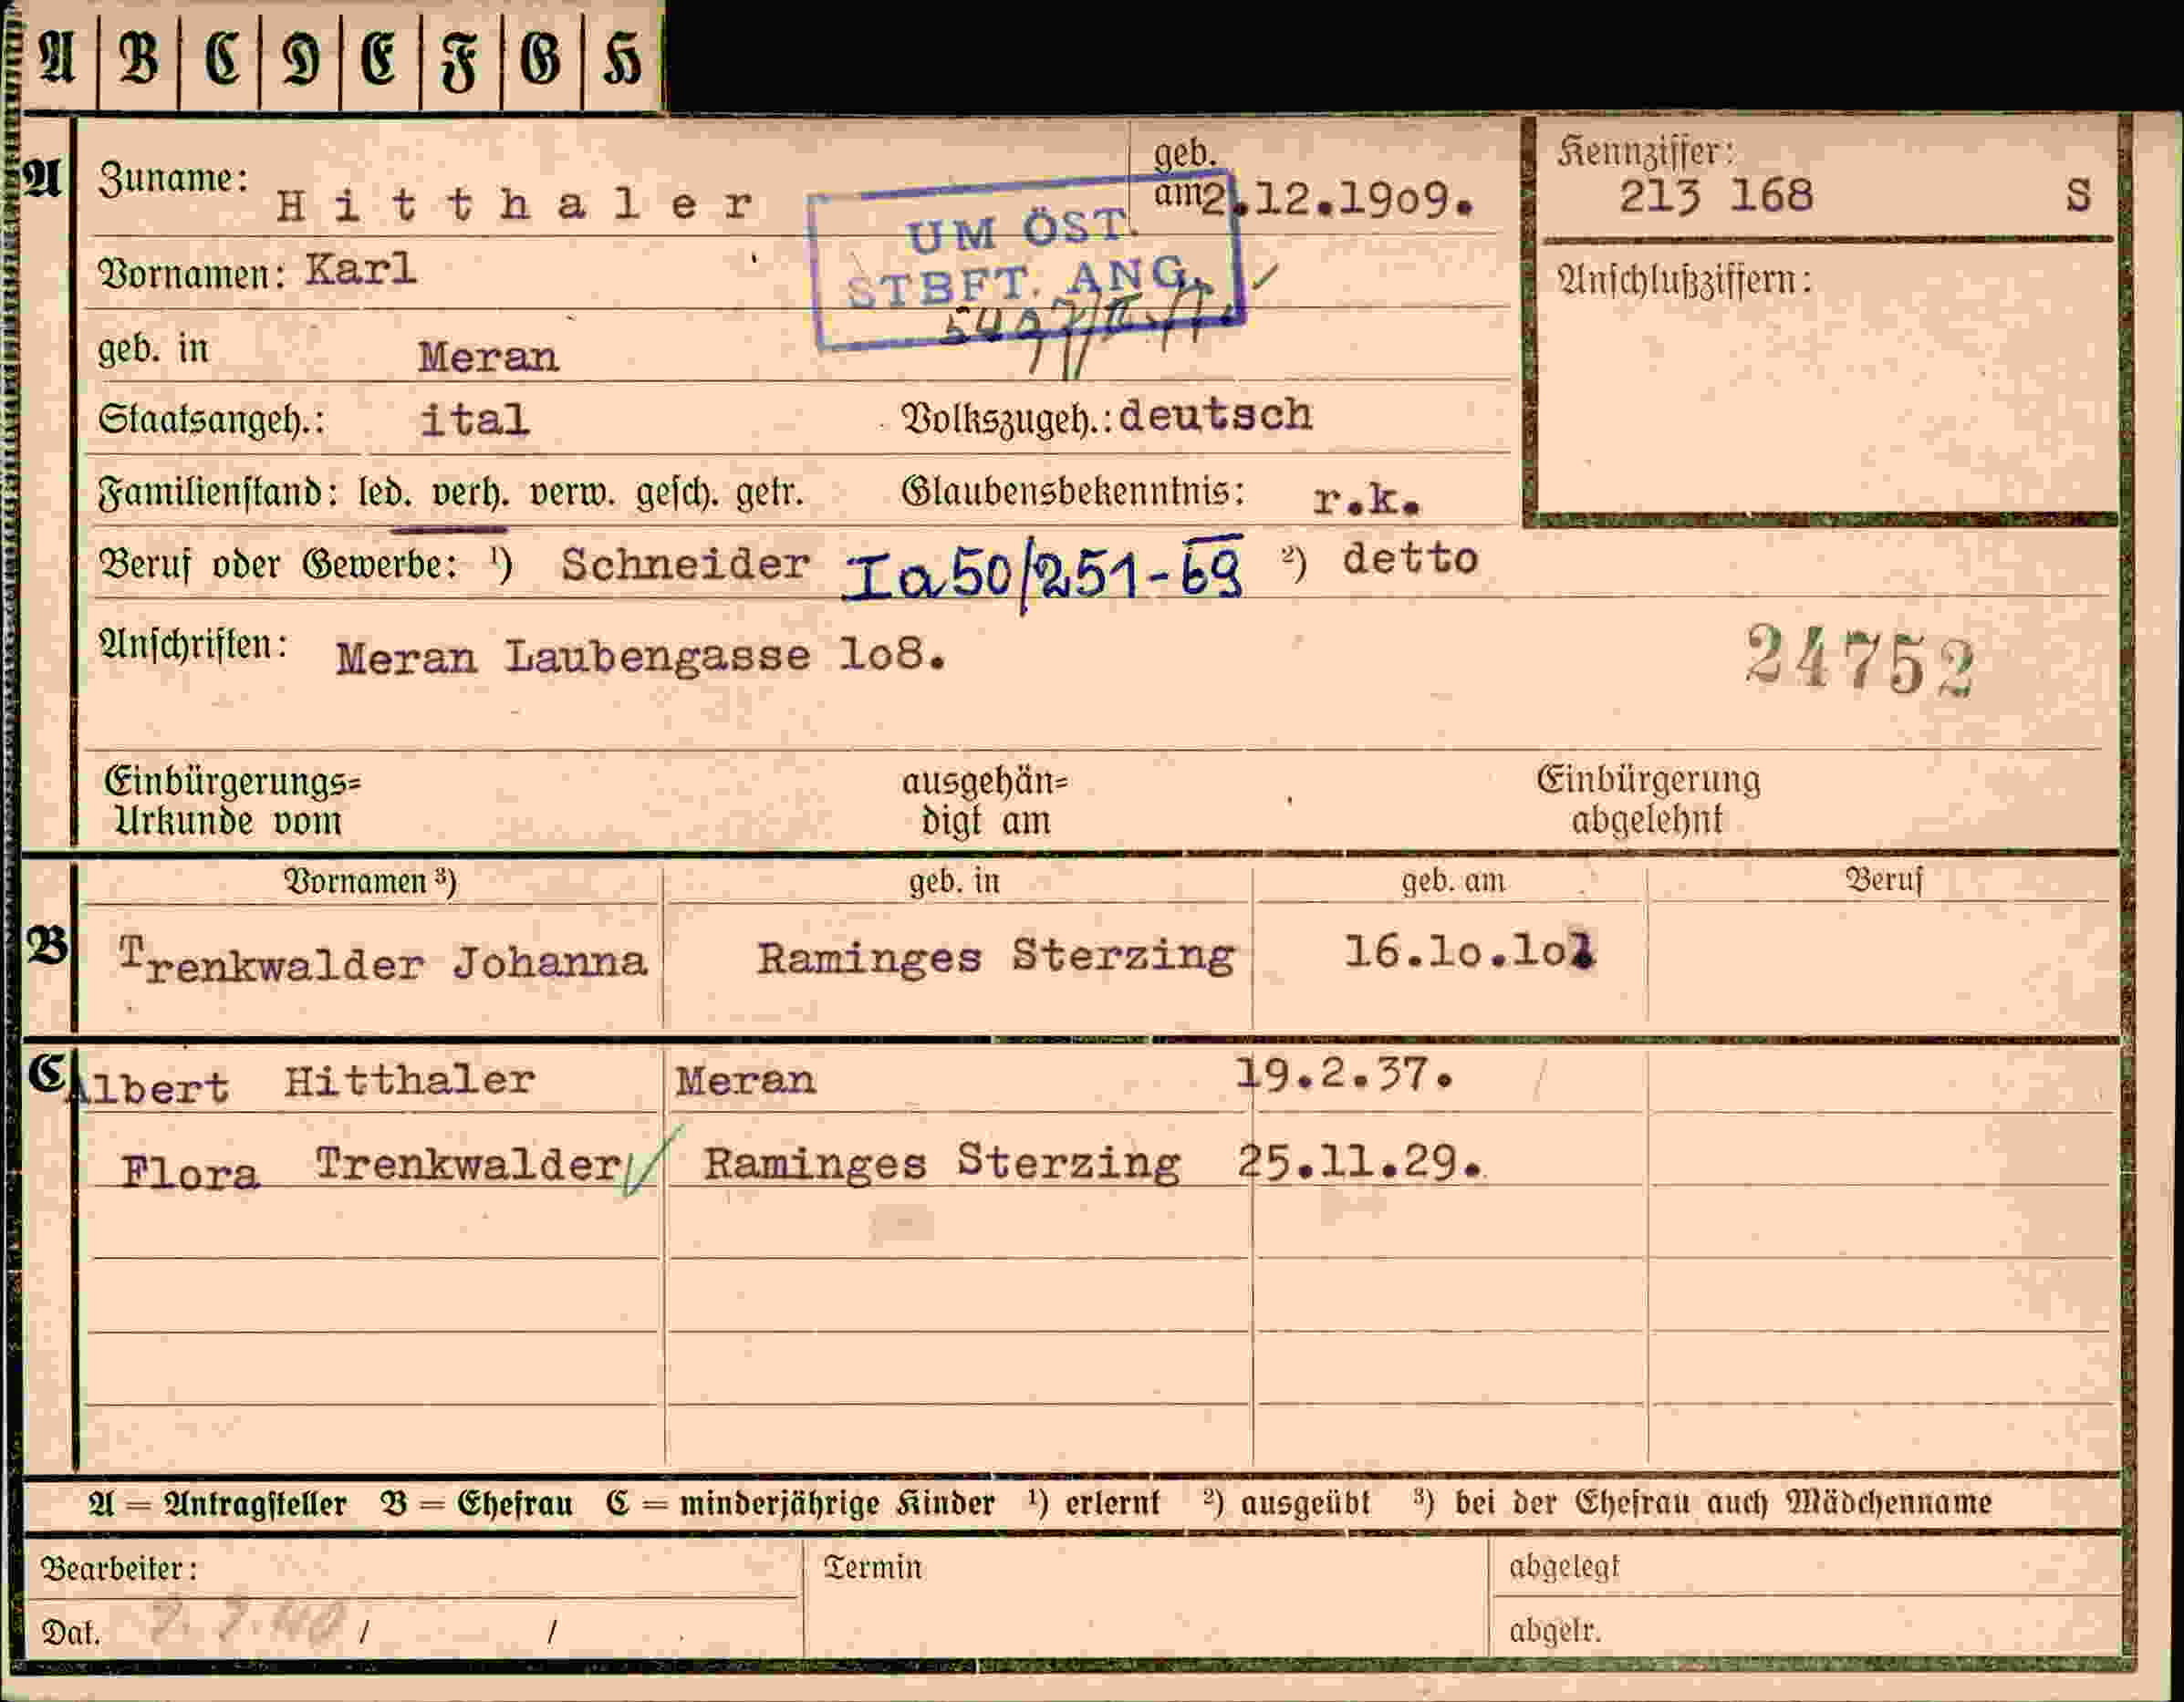 A B C D E F G H
A
Zuname: Hitthaler
geb. am 2.12.1909.
Kennziffer:
213 168 S
UM ÖST.
STBFT. ANG.
Vornamen: Karl
Anschlußziffern:
geb. in Meran
Staatsangeh.: ital Volkszugeh.: deutsch
Familienstand: led. verh. verw. gesch. getr. Glaubensbekenntnis: r.k.
Beruf oder Gewerbe: ¹) Schneider Ia50/251-69 ²) detto
Anschriften: Meran Laubengasse 1o8.
24752
Einbürgerungs= ausgehän= Einbürgerung
Urkunde vom digt am abgelehnt
Vornamen ³) geb. in geb. am Beruf
B Trenkwalder Johanna Raminges Sterzing 16.1o.
C Albert Hitthaler Meran 19.2.37.
Flora Trenkwalder Raminges Sterzing 25.11.29.
A = Antragsteller B = Ehefrau C = minderjährige Kinder ¹) erlernt ²) ausgeübt ³) bei der Ehefrau auch Mädchenname
Bearbeiter: Termin abgelegt
Dat. / / abgelr.